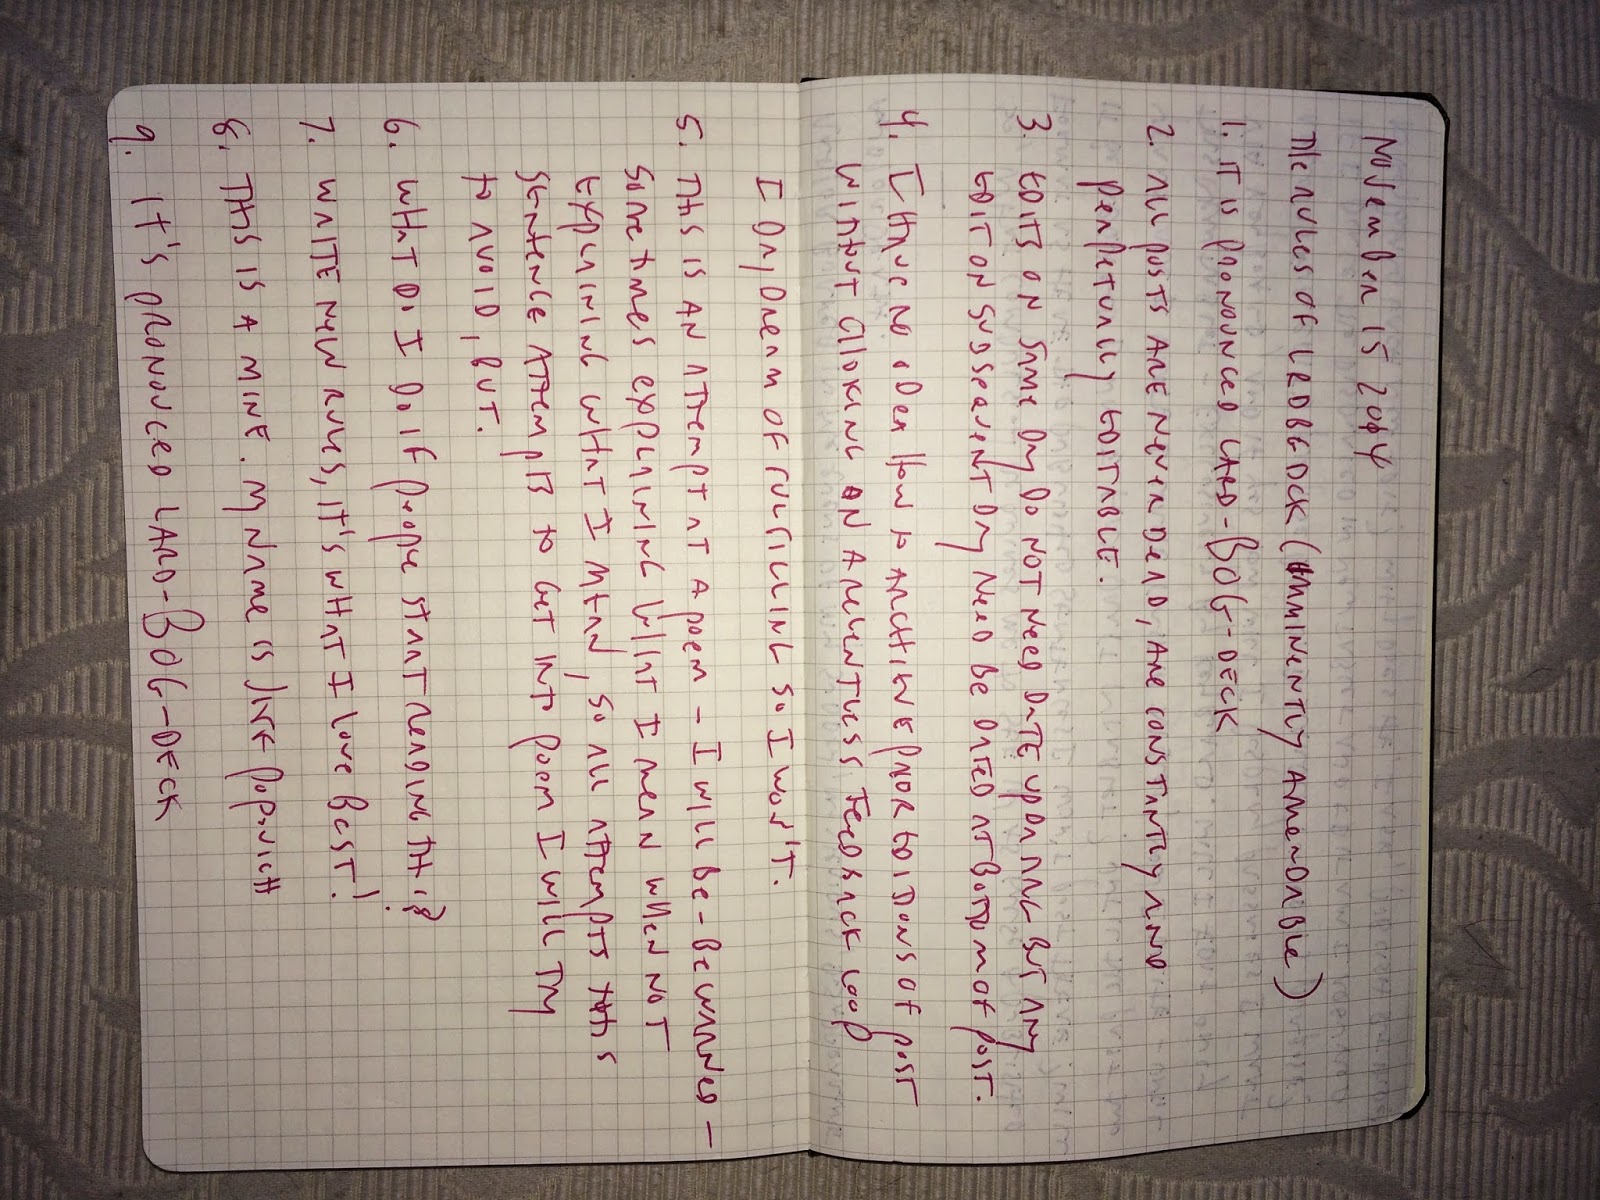 November 15 2014
The rules of LRDBGDCK (imminently amendable)
1. it is pronounced LARD-BOG-DECK
2. All posts are never dead, are constantly and
perpetually editable.
3. Edits on same day do not need date updating but any
edit on subsequent day need be dated at bottom of post.
4. I have no idea how to archive prior editions of post
without choking on a relentless feedback loop
I only dream of fulfilling so I won't.
5. This is an attempt at a poem - I will be - be warned -
sometimes explaining what I mean when not
explaining what I mean, so all attempts this
sentence attempts to get into poem I will try
to avoid, but.
6. What do I do if people start reading this?
7. Write new rules, it's what I love best!
8. This is a mine. My name is Jake Popovich
9. It's pronounced LARD-BOG-DECK